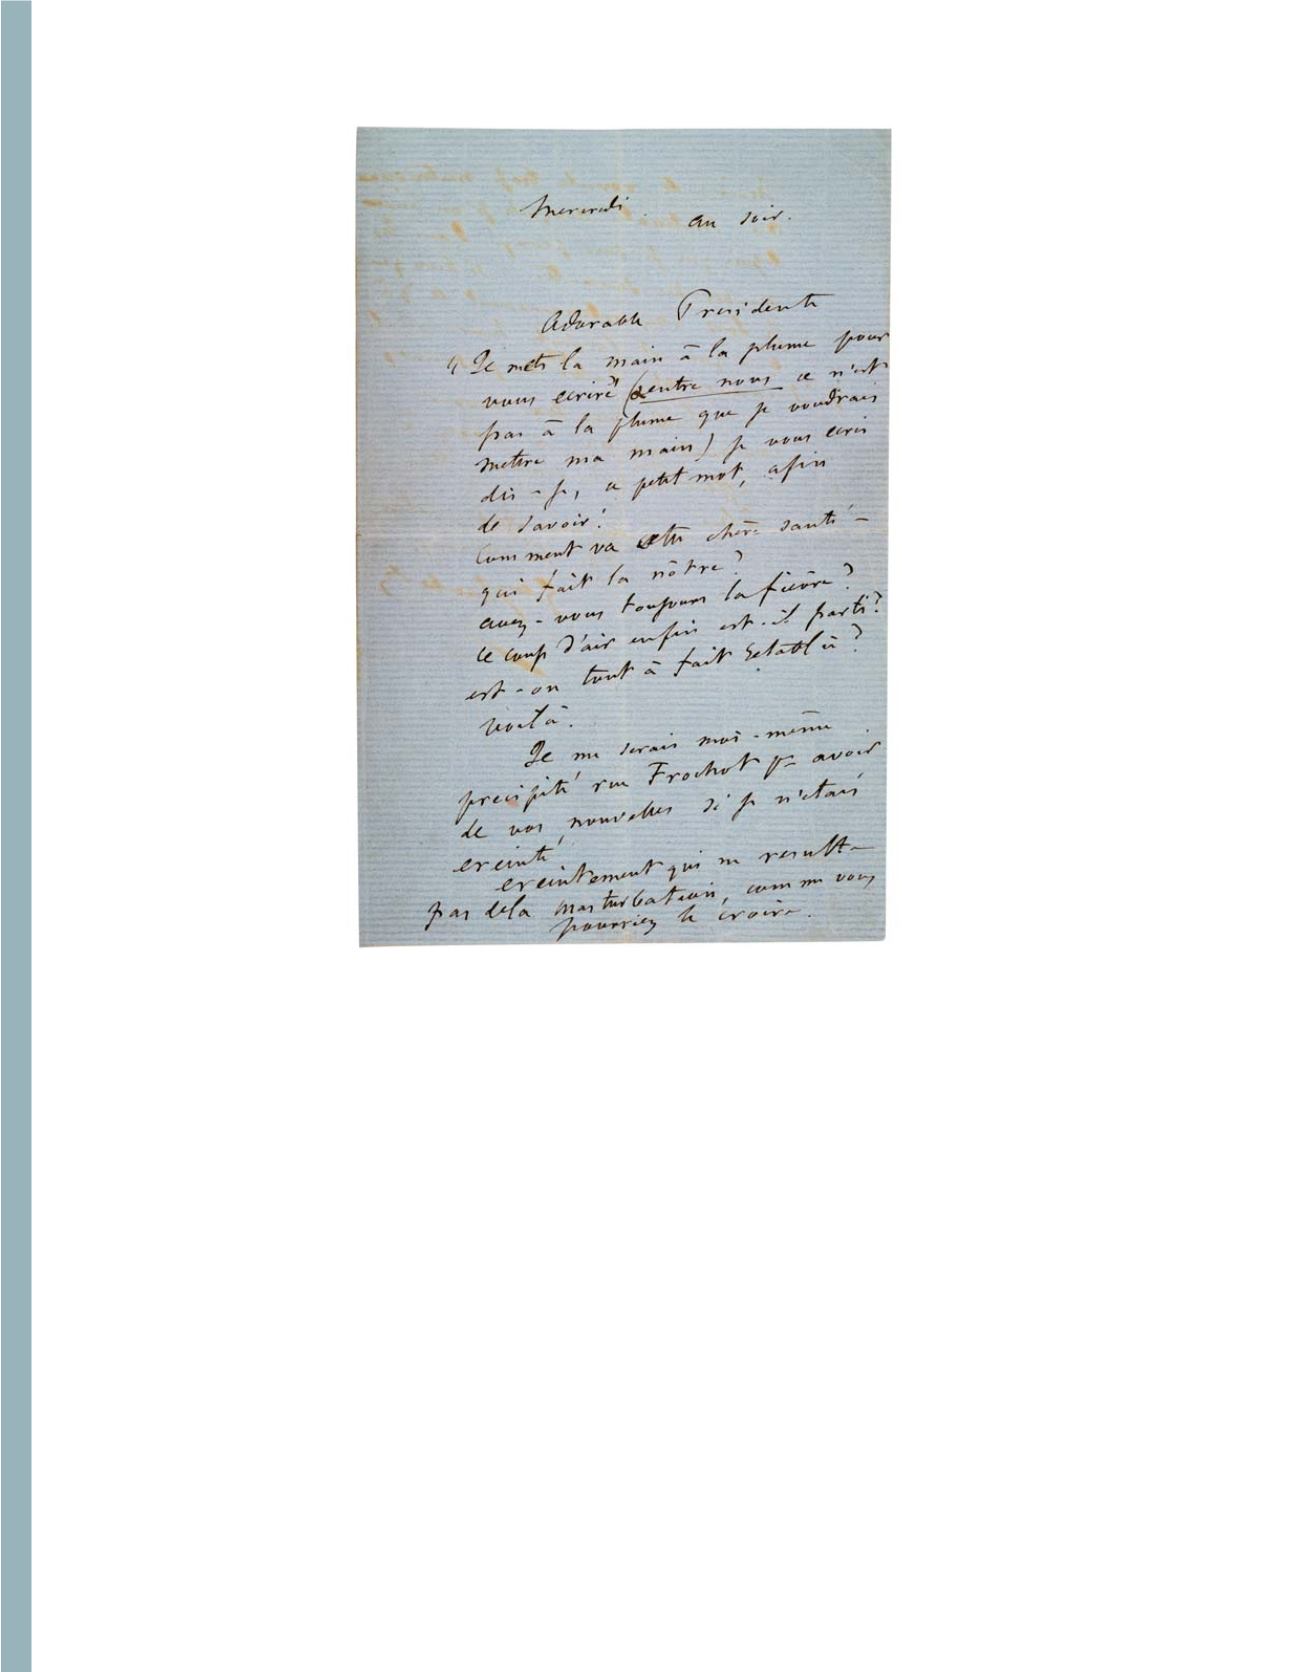 Mercredi au soir.
Adorable Presidente
"Je mets la main à la plume pour
vous ecrire" (entre nous ce n'est
pas à la plume que je voudrais
mettre ma main) je vous ecris
dis-je, ce petit mot, afin
de savoir!
Comment va cette chère santé-
qui fait la nôtre?
avez-vous toujours la fièvre?
ce coup d'air enfin est-il parti?
est-on tout à fait retablie?
voilà.
Je me serais moi-même
precipité rue Frochot pr avoir
de vos nouvelles si je n'etais
ereinté,
ereintement qui ne resulte
pas dela masturbation, comme vous
pourriez le croire.